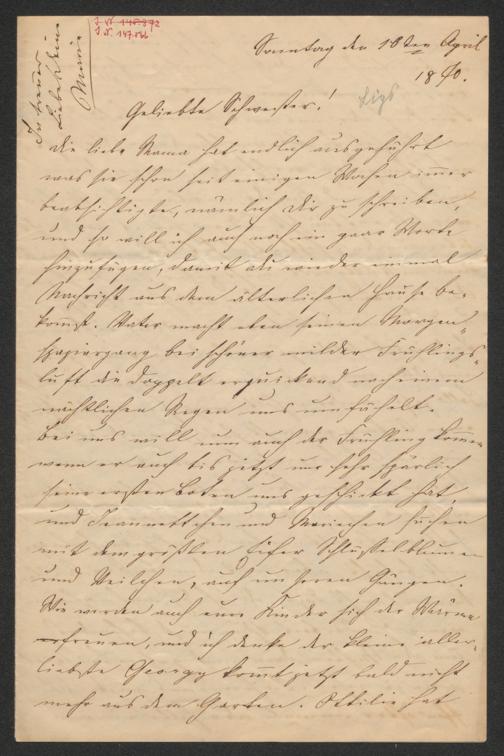 I. N. 145.892
I. N. 147.066
In treuer
Liebe Deine
Marie
Sonntag den 10ten April
1870.
Geliebte Schwester!
Die liebe Mama hat endlich ausgeführt
was sie schon seit einigen Wochen immer
beabsichtigte, nämlich Dir zu schreiben,
und so will ich auch noch ein paar Worte
hinzufügen, damit du wieder einmal
Nachricht aus dem älterlichen Hause be-
kömst. Vater macht eben seinen Morgen-
spaziergang bei schöner milder Frühlings-
luft die doppelt erquickend nach einem
nächtlichen Regen uns umfächelt.
Bei uns will nun auch der Frühling kommen
wenn er auch bis jetzt nur sehr spärlich
seine ersten Boten uns geschickt hat,
und Jeannettchen und Mariechen suchen
mit dem größten Eifer Schlüsselblumen
und Veilchen, auf unseren Gängen.
Wie werden auch eure Kinder sich der Wärme
erfreuen, und ich denke der kleine aller-
liebste Georgy kommt jetzt bald nicht
mehr aus dem Garten. Ottilie hat